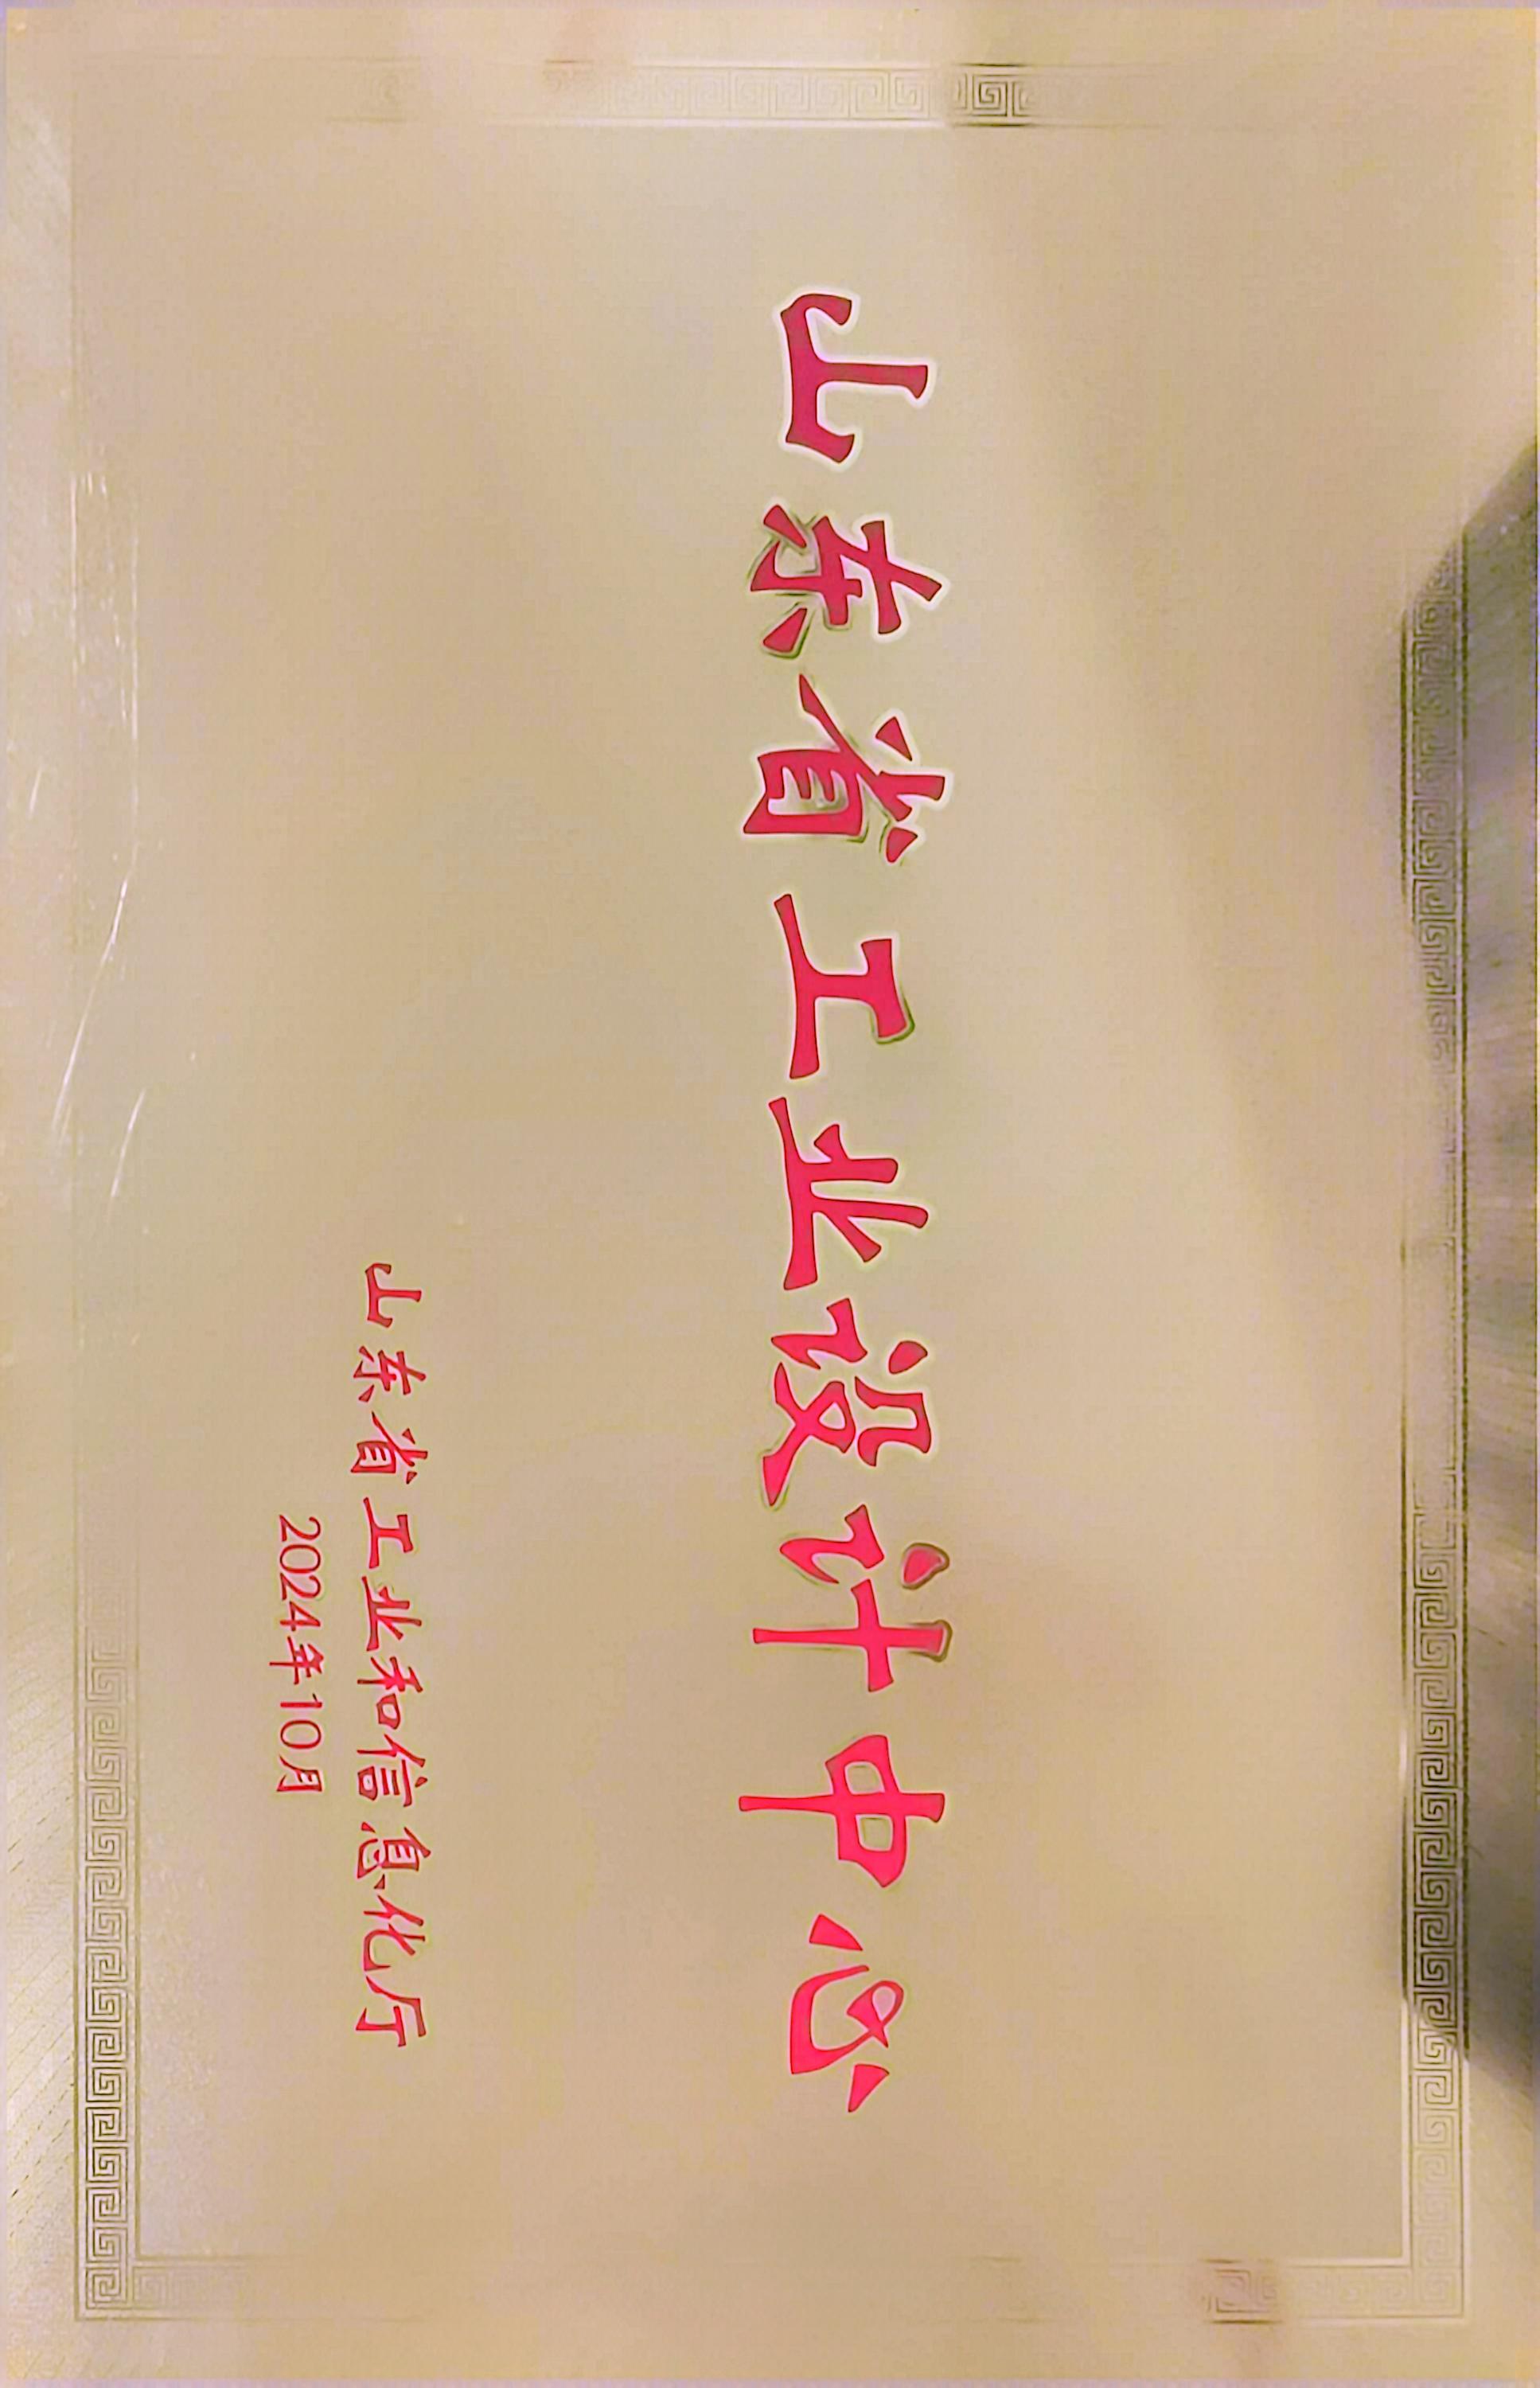 山东省工业设计中心
山东省工业和信息化厅
2024年10月